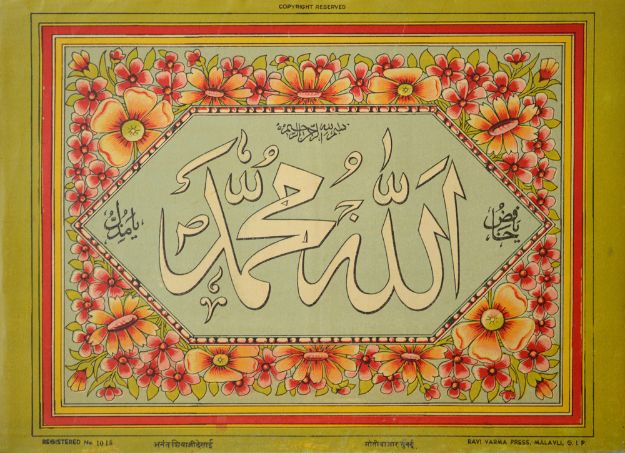 COPYRIGHT RESERVED
بسم الله الرحمن الرحيم
الله محمد
يا خافض
يا مذل
REGISTERED No. 1018 अनंत शिवाजी देसाई मोतीबाजार मुंबई. RAVI VARMA PRESS, MALAVLI, G. I. P.